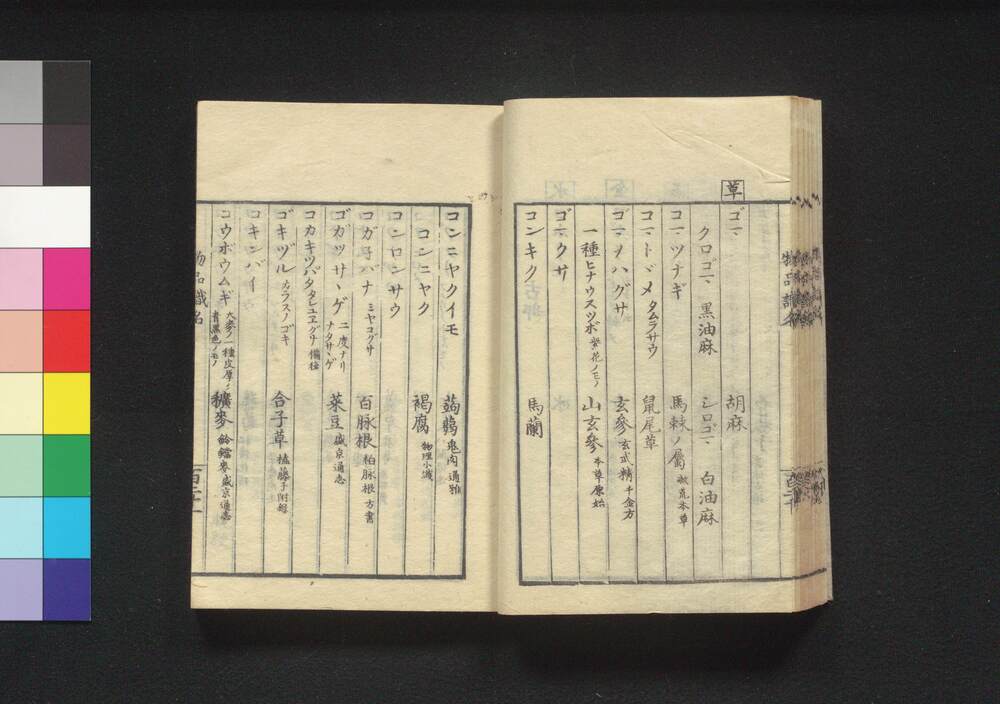 草
ゴマ 胡麻
クロゴマ 黒油麻 シロゴマ 白油麻
コマツナギ 馬棘ノ屬 救荒本草
コマトヾメ タムラサウ 鼠尾草
ゴマノハグサ 玄參 玄武精 千金方
一種ヒナウスツボ 紫花ノモノ 山玄參 本草原始
ゴマクサ
コンキク 馬蘭
コンニヤクイモ 蒟蒻 鬼肉 通雅
コンニヤク 褐腐 物理小識
コンロンサウ
コガ子バナ ミヤコグサ 百脉根 柏脉根 方書
ゴガツサヽゲ 二度ナリ ナタサヽゲ 菜豆 盛京通志
コカキツバタ タレユヱグサ 備後
ゴキヅル カラスノゴキ 合子草 榼藤子附録
コキンバイ
コウボウムギ 大麥ノ一種皮厚ク 青黒色ノモノ 穬麥 鈴鐺麥 盛京通志
物品識名